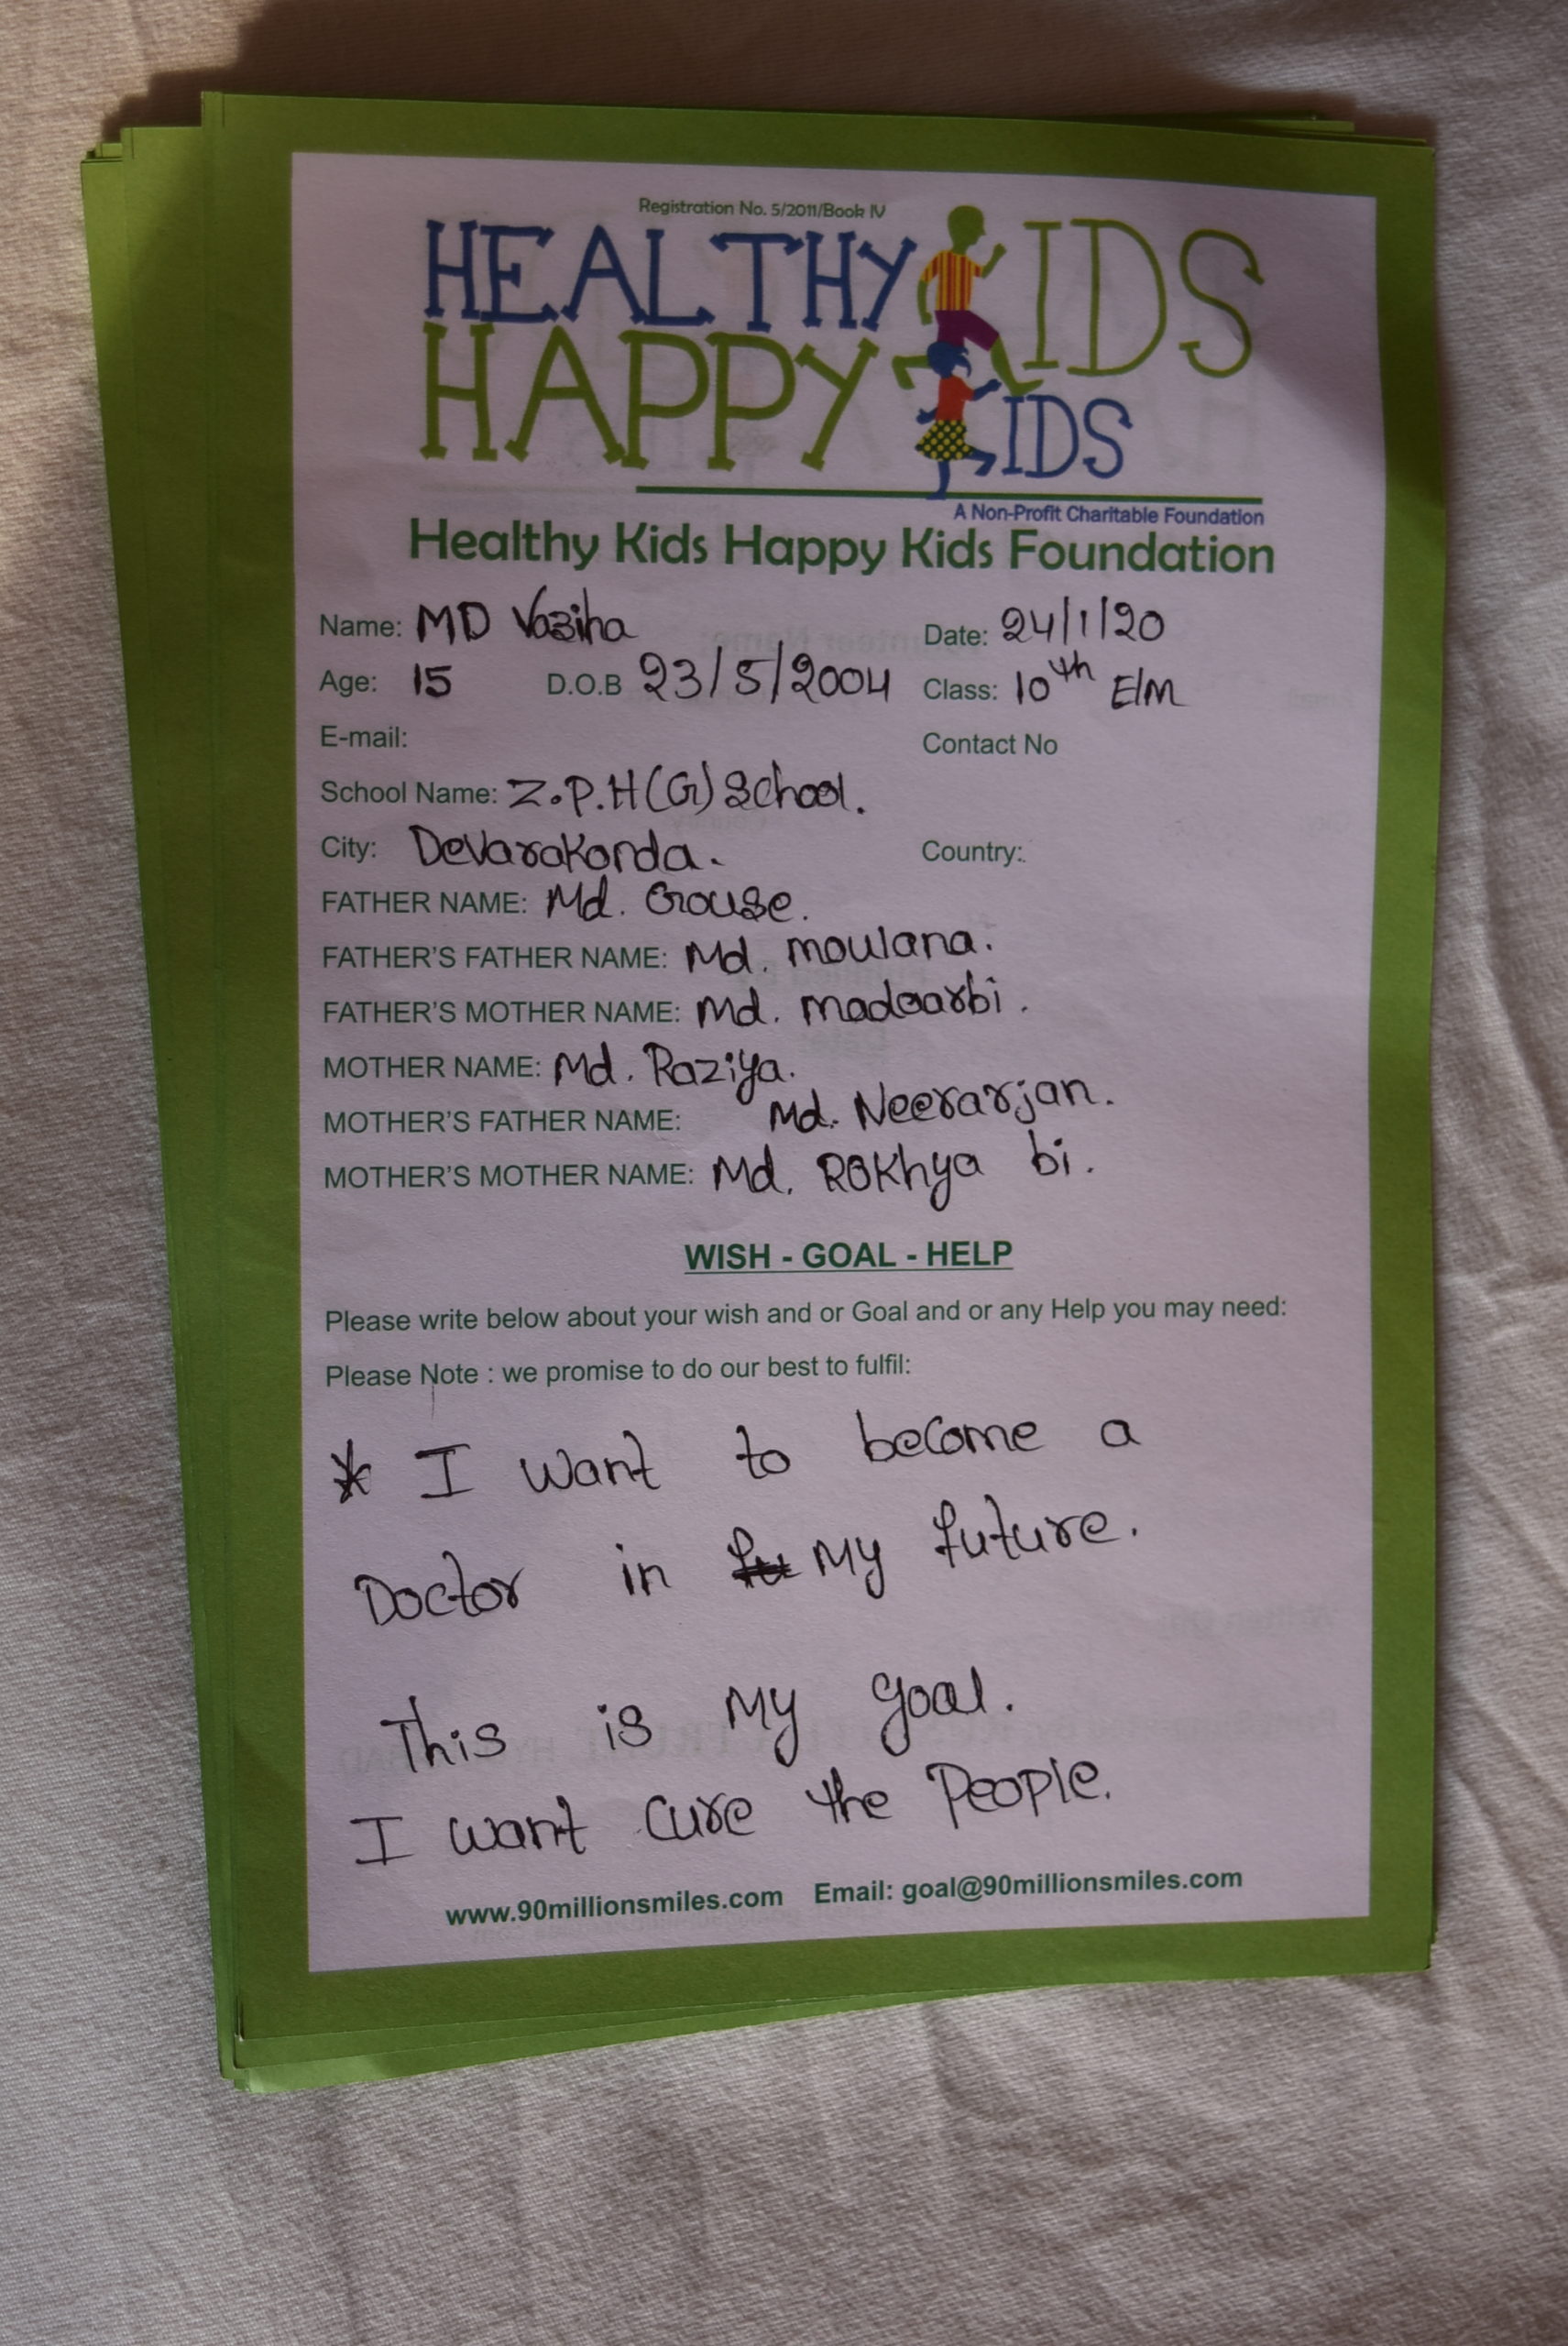 Registration No. 5/2011/Book IV
HEALTHY KIDS
HAPPY KIDS
A Non-Profit Charitable Foundation
Healthy Kids Happy Kids Foundation
Name: MD Vaziha Date: 24/1/20
Age: 15 D.O.B 23/5/2004 Class: 10th E/M
E-mail: Contact No
School Name: Z.P.H(G) School.
City: Devarakonda. Country:
FATHER NAME: Md. Grouse.
FATHER'S FATHER NAME: Md. moulana.
FATHER'S MOTHER NAME: Md. madaarbi.
MOTHER NAME: Md. Raziya.
MOTHER'S FATHER NAME: Md. Neerarjan.
MOTHER'S MOTHER NAME: Md. Rokhya bi.
WISH - GOAL - HELP
Please write below about your wish and or Goal and or any Help you may need:
Please Note : we promise to do our best to fulfil:
* I want to become a
Doctor in My future.
This is My goal.
I want cure the People.
www.90millionsmiles.com Email: goal@90millionsmiles.com